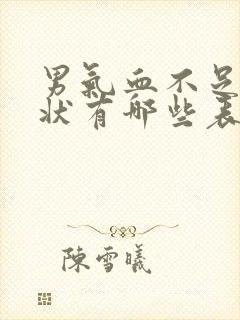 男氣血不足
狀有哪些表
陳雪曦